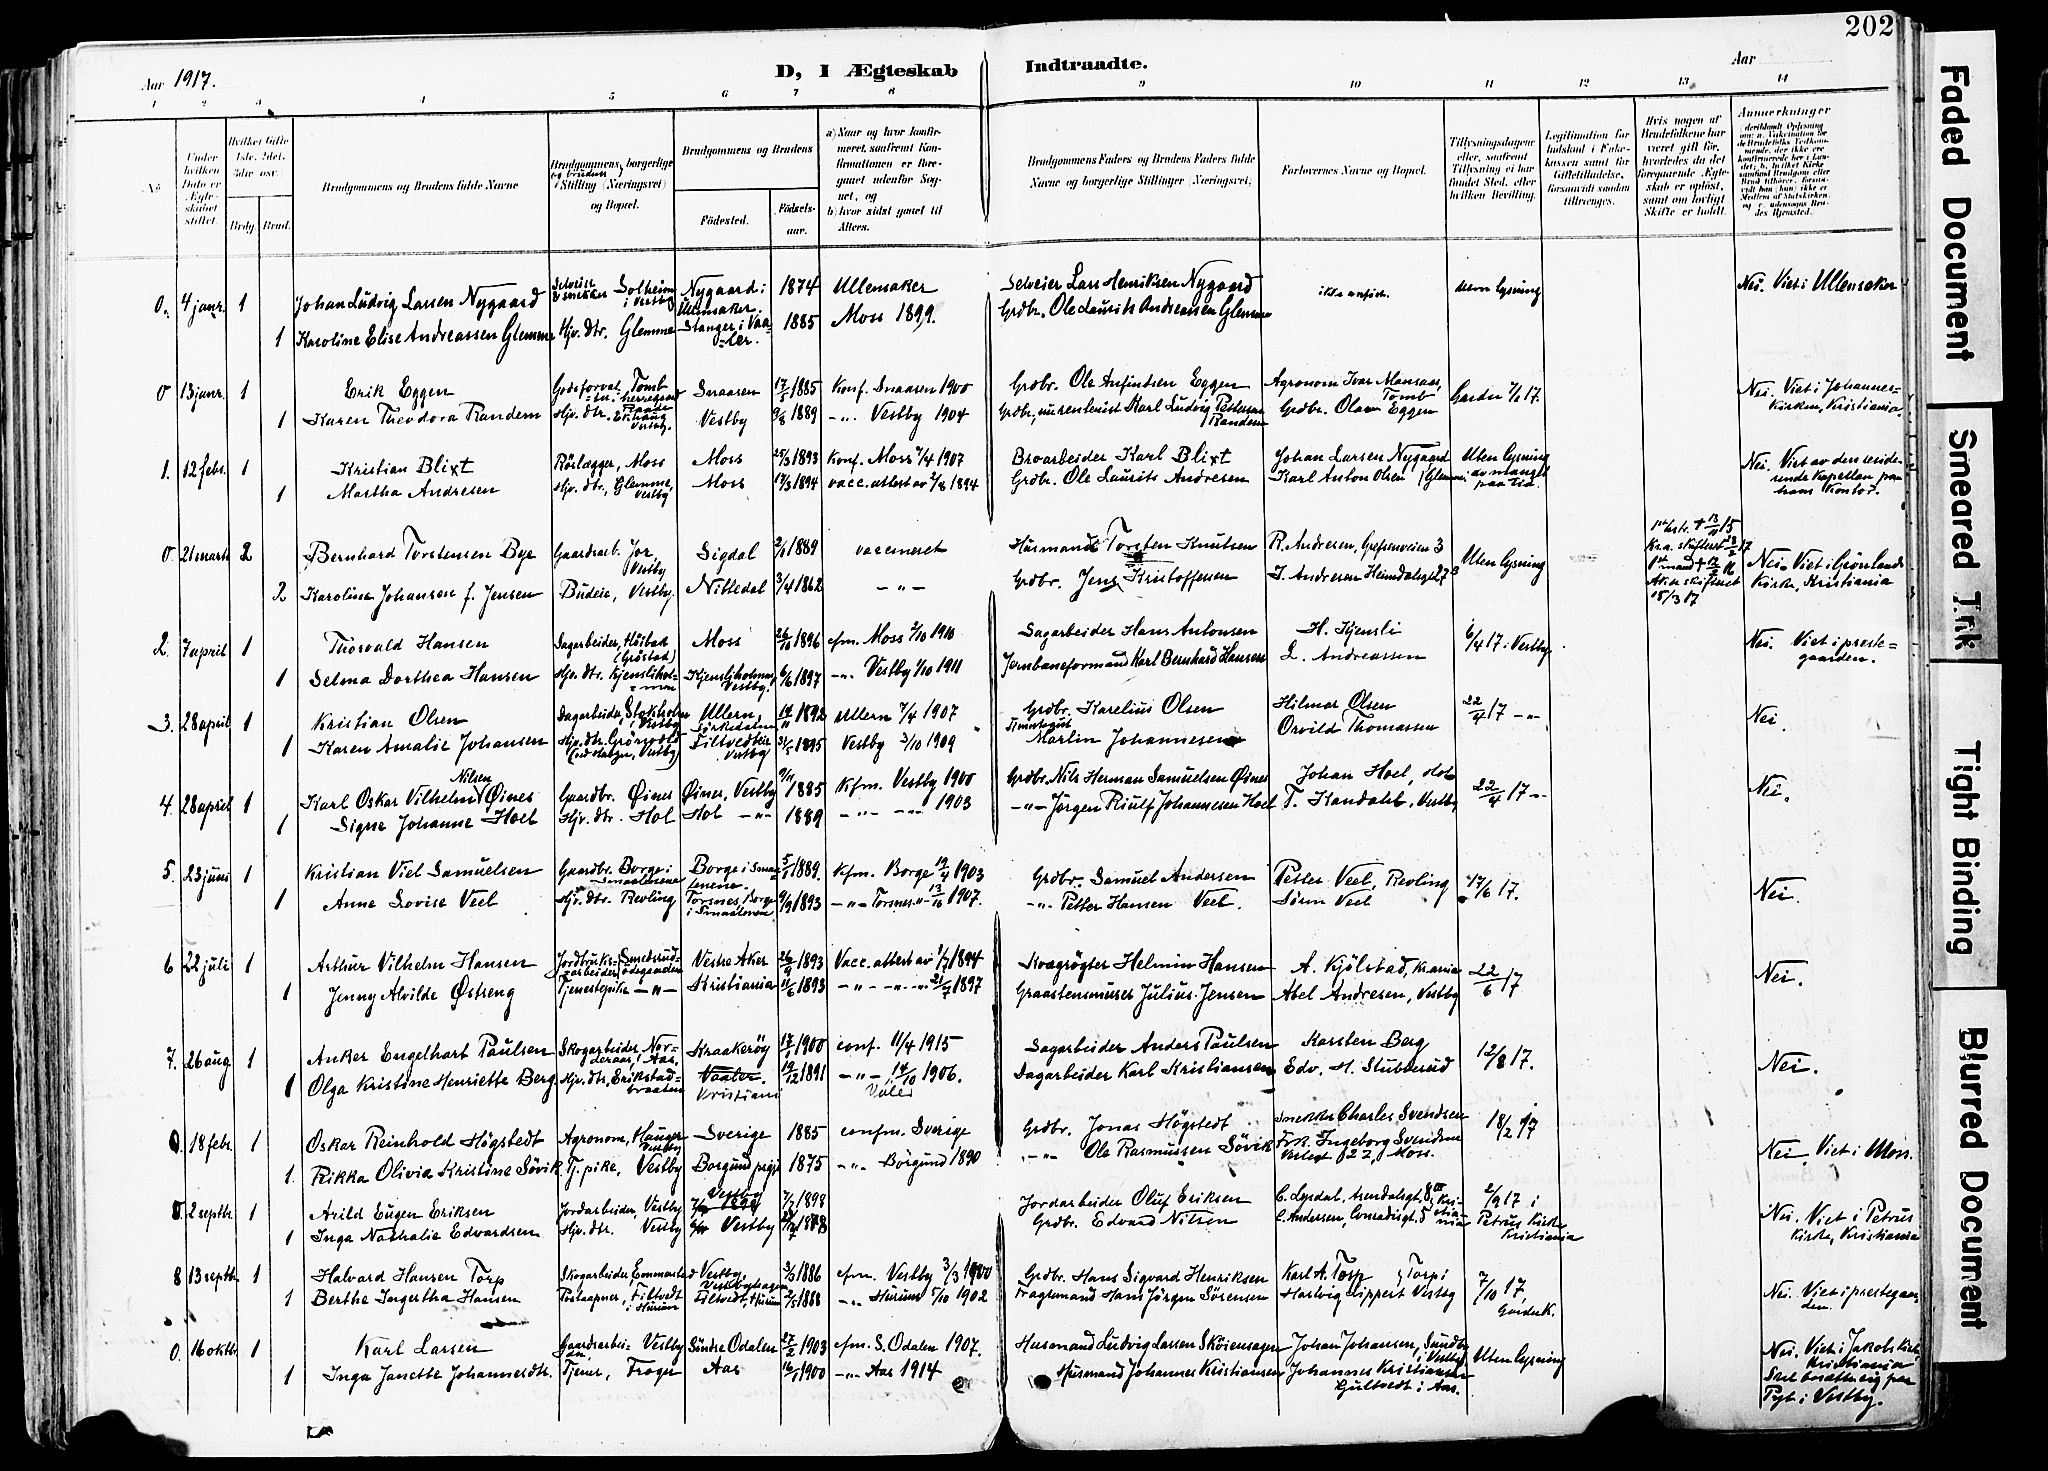 202
Aar 1917.
D, I Ægteskab Indtraadte.
Aar
1 2 3 4 5 6 7 8 9 10 11 12 13 14
No
Under hvilken Dato er Ægteskabet stiftet.
Hvilket Gifte 1ste, 2det, 3die osv.
Brdg. Brud.
Brudgommens og Brudens fulde Navne
Brudgommens og brudens borgerlige Stilling (Næringsvei) og Bopæl.
Brudgommens og Brudens
Fødested.
Fødselsaar.
a) Naar og hvor konfirmeret, saafremt Konfirmationen er foregaaet udenfor Sognet, og
b) hvor sidst gaaet til Alters.
Brudgommens Faders og Brudens Faders fulde Navne og borgerlige Stillinger (Næringsvei)
Forlovernes Navne og Bopæl.
Tillysningsdagene eller, saafremt Tillysning ei har fundet Sted, efter hvilken Bevilling.
Legitimation for Indskud i Enkekassen samt for Giftetilladelse, forsaavidt saadan tiltrænges.
Hvis nogen af Brudefolkene har været gift før, hvordes da det foregaaende Ægteskab er opløst, samt om lovligt Skifte er holdt.
Anmerkninger
0. 4 janr. 1 Johan Ludvig Larsen Nygaard Selveier Solheim i Vestby Nygaard i Ullensaker 1874 Ullensaker Selveier Lars Henriksen Nygaard uten lysning Nei. Viet i Ullensaker
1 Karoline Elise Andreassen Glemme Hjv. dtr. Glemme Stanger i Vaaler. 1885 Moss 1899. Grdbr. Ole Laurits Andreassen Glemme
0 13 janr. 1 Erik Eggen Godsforval. Tomb Snaasen 17/5 1885 Konf. Snaasen 1900 Grdbr. Ole Anfindsen Eggen Agronom Ivar Mansaas, Tomb Garder 7/1 17. Nei. Viet i Johanneskirken, Kristiania.
1 Karen Theodora Randem Hjv. dtr. Vestby. Vestby 9/8 1889 -"- Vestby 1904 Karl Ludvig Pettersen Randem Grdbr. Olam Eggen
1. 12 febr. 1 Kristian Blixt Rørlægger, Moss Moss 25/3 1893 Konf. Moss 7/4 1907 Broarbeider Karl Blixt Johan Larsen Nygaard Uten lysning av mangel paa tid. Nei. Viet av den residerende Kapellan paa hans Kontor.
1 Martha Andresen Hjv. dtr, Glemme, Vestby Moss 17/3 1894 vacc. attest av 2/8 1894 Grdbr. Ole Laurits Andresen Karl Anton Olsen Glemme
0 21 marts 2 Bernhard Torstensen Bye Gaardsarb. Jor, Vestby Sigdal 2/1 1889 vaccineret Husmand Torsten Knutsen R. Andresen, Grefsenveien 3 Uten lysning Nei. Viet i Grønlands Kirke, Kristiania
2 Karoline Johansen f. Jensen Budeie, Vestby. Nittedal 3/4 1862 -"- Grdbr. Jens Kristoffersen J. Andresen Heimdalsgt 27 15/3 17
2. 7 april 1 Thorvald Hansen Sagarbeider, Moss 26/10 1896 cfm. Moss 2/10 1910 Sagarbeider Hans Antonsen H. Kjensli 6/4 17 i Vestby. Nei. Viet i prestegaarden.
1 Selma Dorthea Hansen Hjv. dtr. Kjensliholmen Kjensliholmen, Vestby. 6/6 1897 -"- Vestby 1/10 1911 Jernbaneformand Karl Bernhard Hansen L. Andreassen
3. 28 april 1 Kristian Olsen Dagarbeider, Stokholm, Vestby Ullern, Sørkedalen 14/11 1892 Ullern 7/4 1907 Grdbr. Karelius Olsen Hilmar Olsen 22/4 17 -"- Nei.
1 Karen Amalie Johansen Hjv. dtr. Grønvold Filtvedteie Vestby 31/5 1895 Vestby 3/10 1909 Martin Johannesen Orvild Thomassen
4. 28 april 1 Karl Oskar Vilhelm Nilsen Øines Gaardbr. Øines Øines, Vestby 9/11 1885 Kfm. Vestby 1900 Grdbr. Nils Herman Samuelsen Øines Johan Hoel, Hol 22/4 17 -"- Nei.
1 Signe Johanne Hoel Hjv. dtr. Hol Hol -"- 1889 -"- -"- 1903 -"- Jørgen Riulf Johannesen Hoel T. Kandahl, Vestby
5. 23 juni 1 Kristian Viel Samuelsen Gaardbr. Borge i Smaalenene Borge i Smaalenene. 5/1 1889. Kfm. Borge 19/4 1903 Grdbr. Samuel Andersen Petter Veel, Revling 17/6 17. Nei.
1 Anne Lovise Veel Hjv. dtr. Revling Torsnes, Borge i Smaalenene 9/9 1893 -"- Torsnes 13/10 1907. -"- Petter Hansen Veel. Søren Veel
6 22 juli 1 Arthur Vilhelm Hansen Jordbruksarbeider, Smedsrudødegaarden Vestre Aker 26/9 1893 Vacc. attest av 1/7 1894 Kvægrøgter Helmin Hansen A. Kjølstad, Krania 22/6 17 Nei.
1 Jenny Alvilde Østreng Tjenestepike -"- Kristiania 11/6 1893 -"- -"- 21/7 1897 Graastensmurer Julius Jensen Abel Andresen, Vestby
7. 26 aug. 1 Anker Engelhart Paulsen Skogarbeider, Norderaas, i Aas. Kraakerøy 17/1 1900 conf. 11/4 1915 Sagarbeider Anders Paulsen Karsten Berg 12/8 17. Nei.
1 Olga Kristine Henriette Berg. Hjv. dtr. Erikstadbraaten Vaaler. Kristiani 19/12 1891 -"- 14/10 1906. Våler Dagarbeider Karl Kristiansen Edv. H. Stubberud
0. 18 febr. 1 Oskar Reinhold Høgstedt Agronom, Hauger Vestby Sverige 1885 confm. Sverige Grdbr. Jonas Høgstedt Snekker Charles Svendsen 18/2 17 Nei. Viet i Moss.
1. Rikka Olivia Kristine Søvik Tj. pike, Vestby Borgund prgj 1875 -"- Borgund 1890 -"- Ole Rasmussen Søvik Frk. Ingeborg Svendsen 22, Moss.
0. 2 septbr. 1 Arild Eugen Eriksen Jordarbeider, Vestby Vestby 7/7 1898 Jordarbeider Oluf Eriksen C. Lysdal, Arendalsgt. 8 Kristiania 2/9 17 i Petrus Kirke Kristiania Nei. Viet i Petrus Kirke, Kristiania
1 Inga Nathalie Edvardsen Hjv. dtr. Vestby Vestby Grdbr. Edvard Nilsen C. Andersen, Conradisgt. 5
8 13 septbr. 1 Halvard Hansen Torp Skogarbeider, Emmerstad Vestby, 3/3 1886 cfm. Vestby 3/3 1900 Grdbr. Hans Sigvard Henriksen Karl A. Torp Torp i Vestby 7/10 17, Garder K. Nei. Viet i prestegaarden.
1 Berthe Ingertha Hansen Postaapner, Filtvedt i Hurum Filtvedt, Hurum 2/5 1888 -"- Hurum 5/10 1902 Fragtemand Hans Jørgen Sørensen Hartvig Lippert
0. 16 oktbr. 1 Karl Larsen Gaardsarbei- Vestby Søndre Odalen 27/2 1903 cfm. S. Odalen 1907. Husmand Ludvig Larsen Skøiensagen Johan Johansen, Sundby i Vestby Uten lysning Nei. Viet i Jakobs Kirke Kristiania
1 Inga Janette Johannesdtr. Tjener, Froger Aas 16/1 1900 -"- Aas 1914 Husmand Johannes Kristiansen Johannes Kristiansen Gultvedt i Aas. Skal bosætte sig paa Pyt i Vestby.
Faded Document
Smeared Ink
Tight Binding
Blurred Document